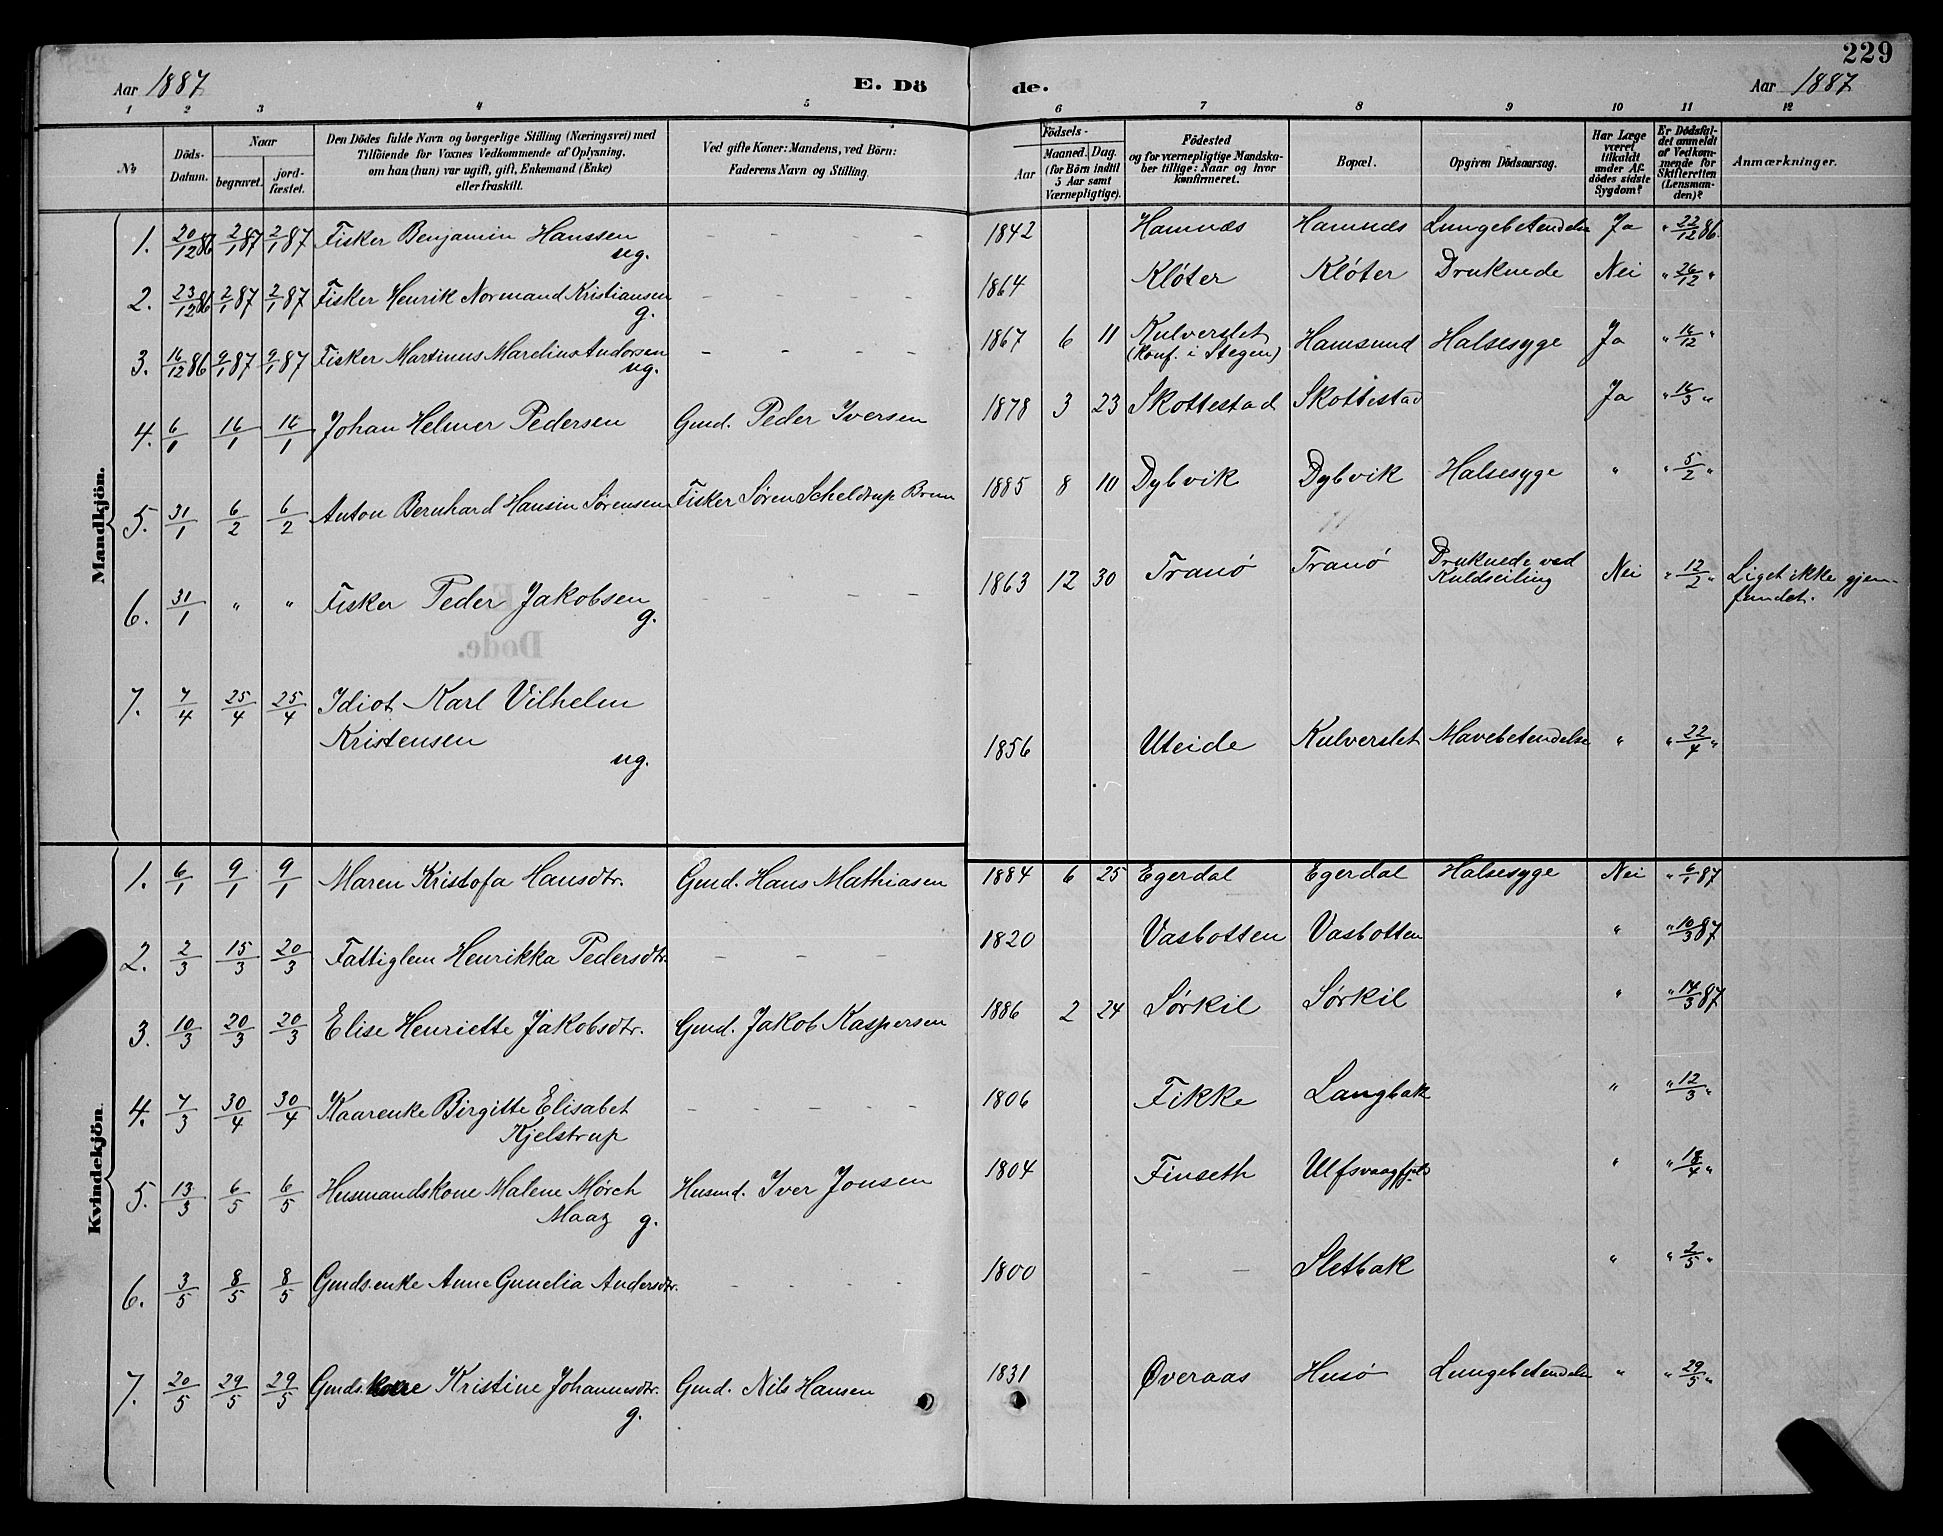 229
Aar 1887 E. Dö de. Aar 1887
1 2 3 4 5 6 7 8 9 10 11 12
No
Döds-Datum.
Naar
begravet.
jordfæstet.
Den Dödes fulde Navn og borgerlige Stilling (Næringsvei) med
Tilföiende for Voxnes Vedkommende af Oplysning,
om han (hun) var ugift, gift, Enkemand (Enke)
eller fraskilt.
Ved gifte Koner: Mandens, ved Börn:
Faderens Navn og Stilling.
Födsels-
Aar
Maaned. Dag.
(for Börn indtil
5 Aar samt
Værnepligtige).
Födested
og for værnepligtige Mandska-
ber tillige: Naar og hvor
konfirmeret.
Bopæl.
Opgiven Dödsaarsag.
Har Læge
været
tilkaldt
under Af-
dödes sidste
Sygdom?
Er Dödsfal-
det anmeldt
af Vedkom-
mende for
Skifteretten
(Lensman-
den)?
Anmærkninger.
Mandkjön.
1. 20/12 86 2/1 87 2/1 87 Fisker Benjamin Hanssen ug. – – – – 1842 Hamnæs Hamnæs Lungebetendelse Ja " 22/12 86.
2. 23/12 86 2/1 87 2/1 87 Fisker Henrik Normand Kristiansen g. – – – – 1864 Kløter Kløter Druknede Nei " 26/12 "
3. 16/12 86 9/1 87 9/1 87 Fisker Martinus Marelius Andorsen ug. – – – – 1867 6 11 Kulverslet (Konf. i Stegen) Hamsund Halsesyge Ja " 16/12 "
4. 6/1 16/1 16/1 Johan Helmer Pedersen Gmd. Peder Iversen 1878 3 23 Skottestad Skottestad Ja " 16/3 "
5. 31/1 6/2 6/2 Anton Bernhard Hansin Sørensen Fisker Søren Scheldrup Brun 1885 8 10 Dybvik Dybvik Halsesyge " " 5/2 "
6. 31/1 " " Fisker Peder Jakobsen g. – – – – 1863 12 30 Tranö Tranö Druknede ved Kuldseiling Nei " 12/2 " Liget ikke gjen-
fundet.
7. 7/4 25/4 25/4 Idiot Karl Vilhelm
Kristensen
ug. 1856 Uteide Kulverslet Mavebetendelse " " 22/4 "
Kvindekjön.
1. 6/1 9/1 9/1 Maren Kristofa Hansdtr. Gmd. Hans Mathiasen 1884 6 25 Egerdal Egerdal Halsesyge Nei " 6/1 87
2. 2/3 15/3 20/3 Fattiglem Henrikka Pedersdtr. – – – 1820 Vasbotten Vasbotten " " 10/3 87
3. 10/3 20/3 20/3 Elise Henriette Jakobsdtr. Gmd. Jakob Kaspersen 1886 2 24 Sørkil Sørkil " " 14/3 87
4. 7/3 30/4 30/4 Kaarenke Birgitte Elisabet
Kjelstrup – – – – 1806 Fikke Langbak " " 12/3 "
5. 13/3 6/5 6/5 Husmandskone Malene Mørch
Maaz g. Husmd. Iver Jonsen 1804 Finseth Ulfsvaagfjeld " " 18/4 "
6. 3/5 8/5 8/5 Gmdsenke Anne Gunelia Andersdtr. – – – – 1800 – – Sletbak " " 2/5 "
7. 20/5 29/5 29/5 Gmdskone Kristine Johannesdtr.
g. Gmd. Nils Hansen 1831 Øveraas Husø Lungebetendelse " " 29/5 "